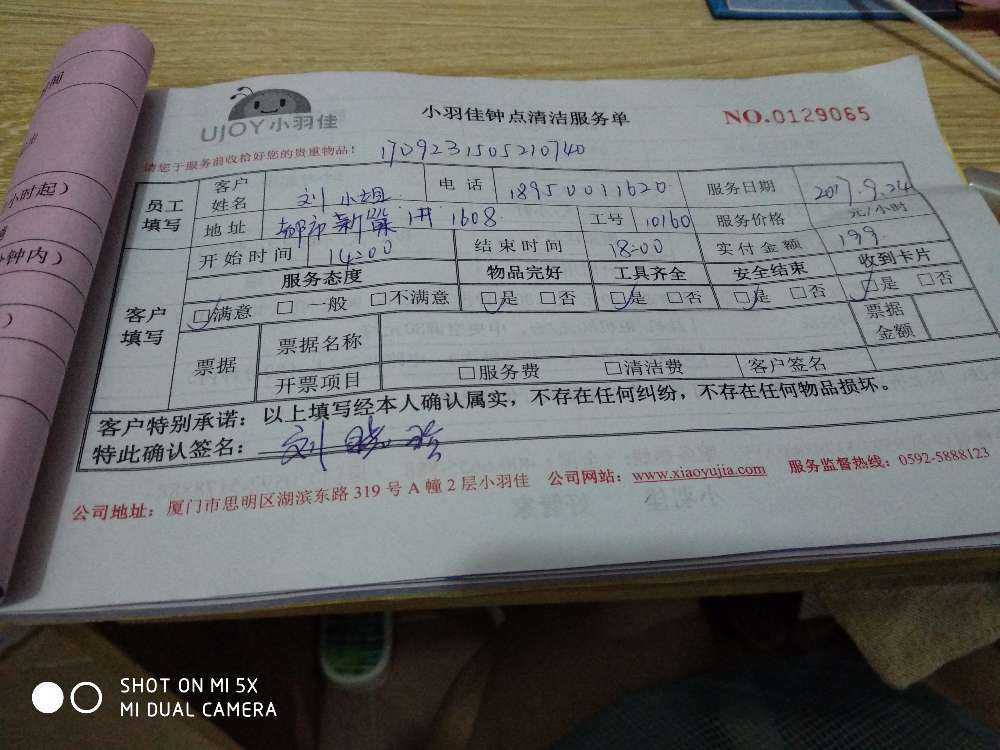 UJOY小羽佳
小羽佳钟点清洁服务单
NO.0129065
请您于服务前收拾好您的贵重物品!
1709231505210740
员工填写
客户姓名 刘小姐 电话 18950011620 服务日期 2017.9.24
地址 都市新巢 1608 工号 10160 服务价格 元/小时
开始时间 14:00 结束时间 18:00 实付金额 199
客户填写
服务态度 物品完好 工具齐全 安全结束 收到卡片
□满意 □一般 □不满意 □是 □否 □是 □否 □是 □否 □是 □否
票据 票据名称 票据金额
开票项目 □服务费 □清洁费 客户签名
客户特别承诺:以上填写经本人确认属实,不存在任何纠纷,不存在任何物品损坏。
特此确认签名:刘晓玲
公司地址:厦门市思明区湖滨东路319号A幢2层小羽佳 公司网站:www.xiaoyujia.com 服务监督热线:0592-5888123
小时起)
钟内)
SHOT ON MI 5X
MI DUAL CAMERA